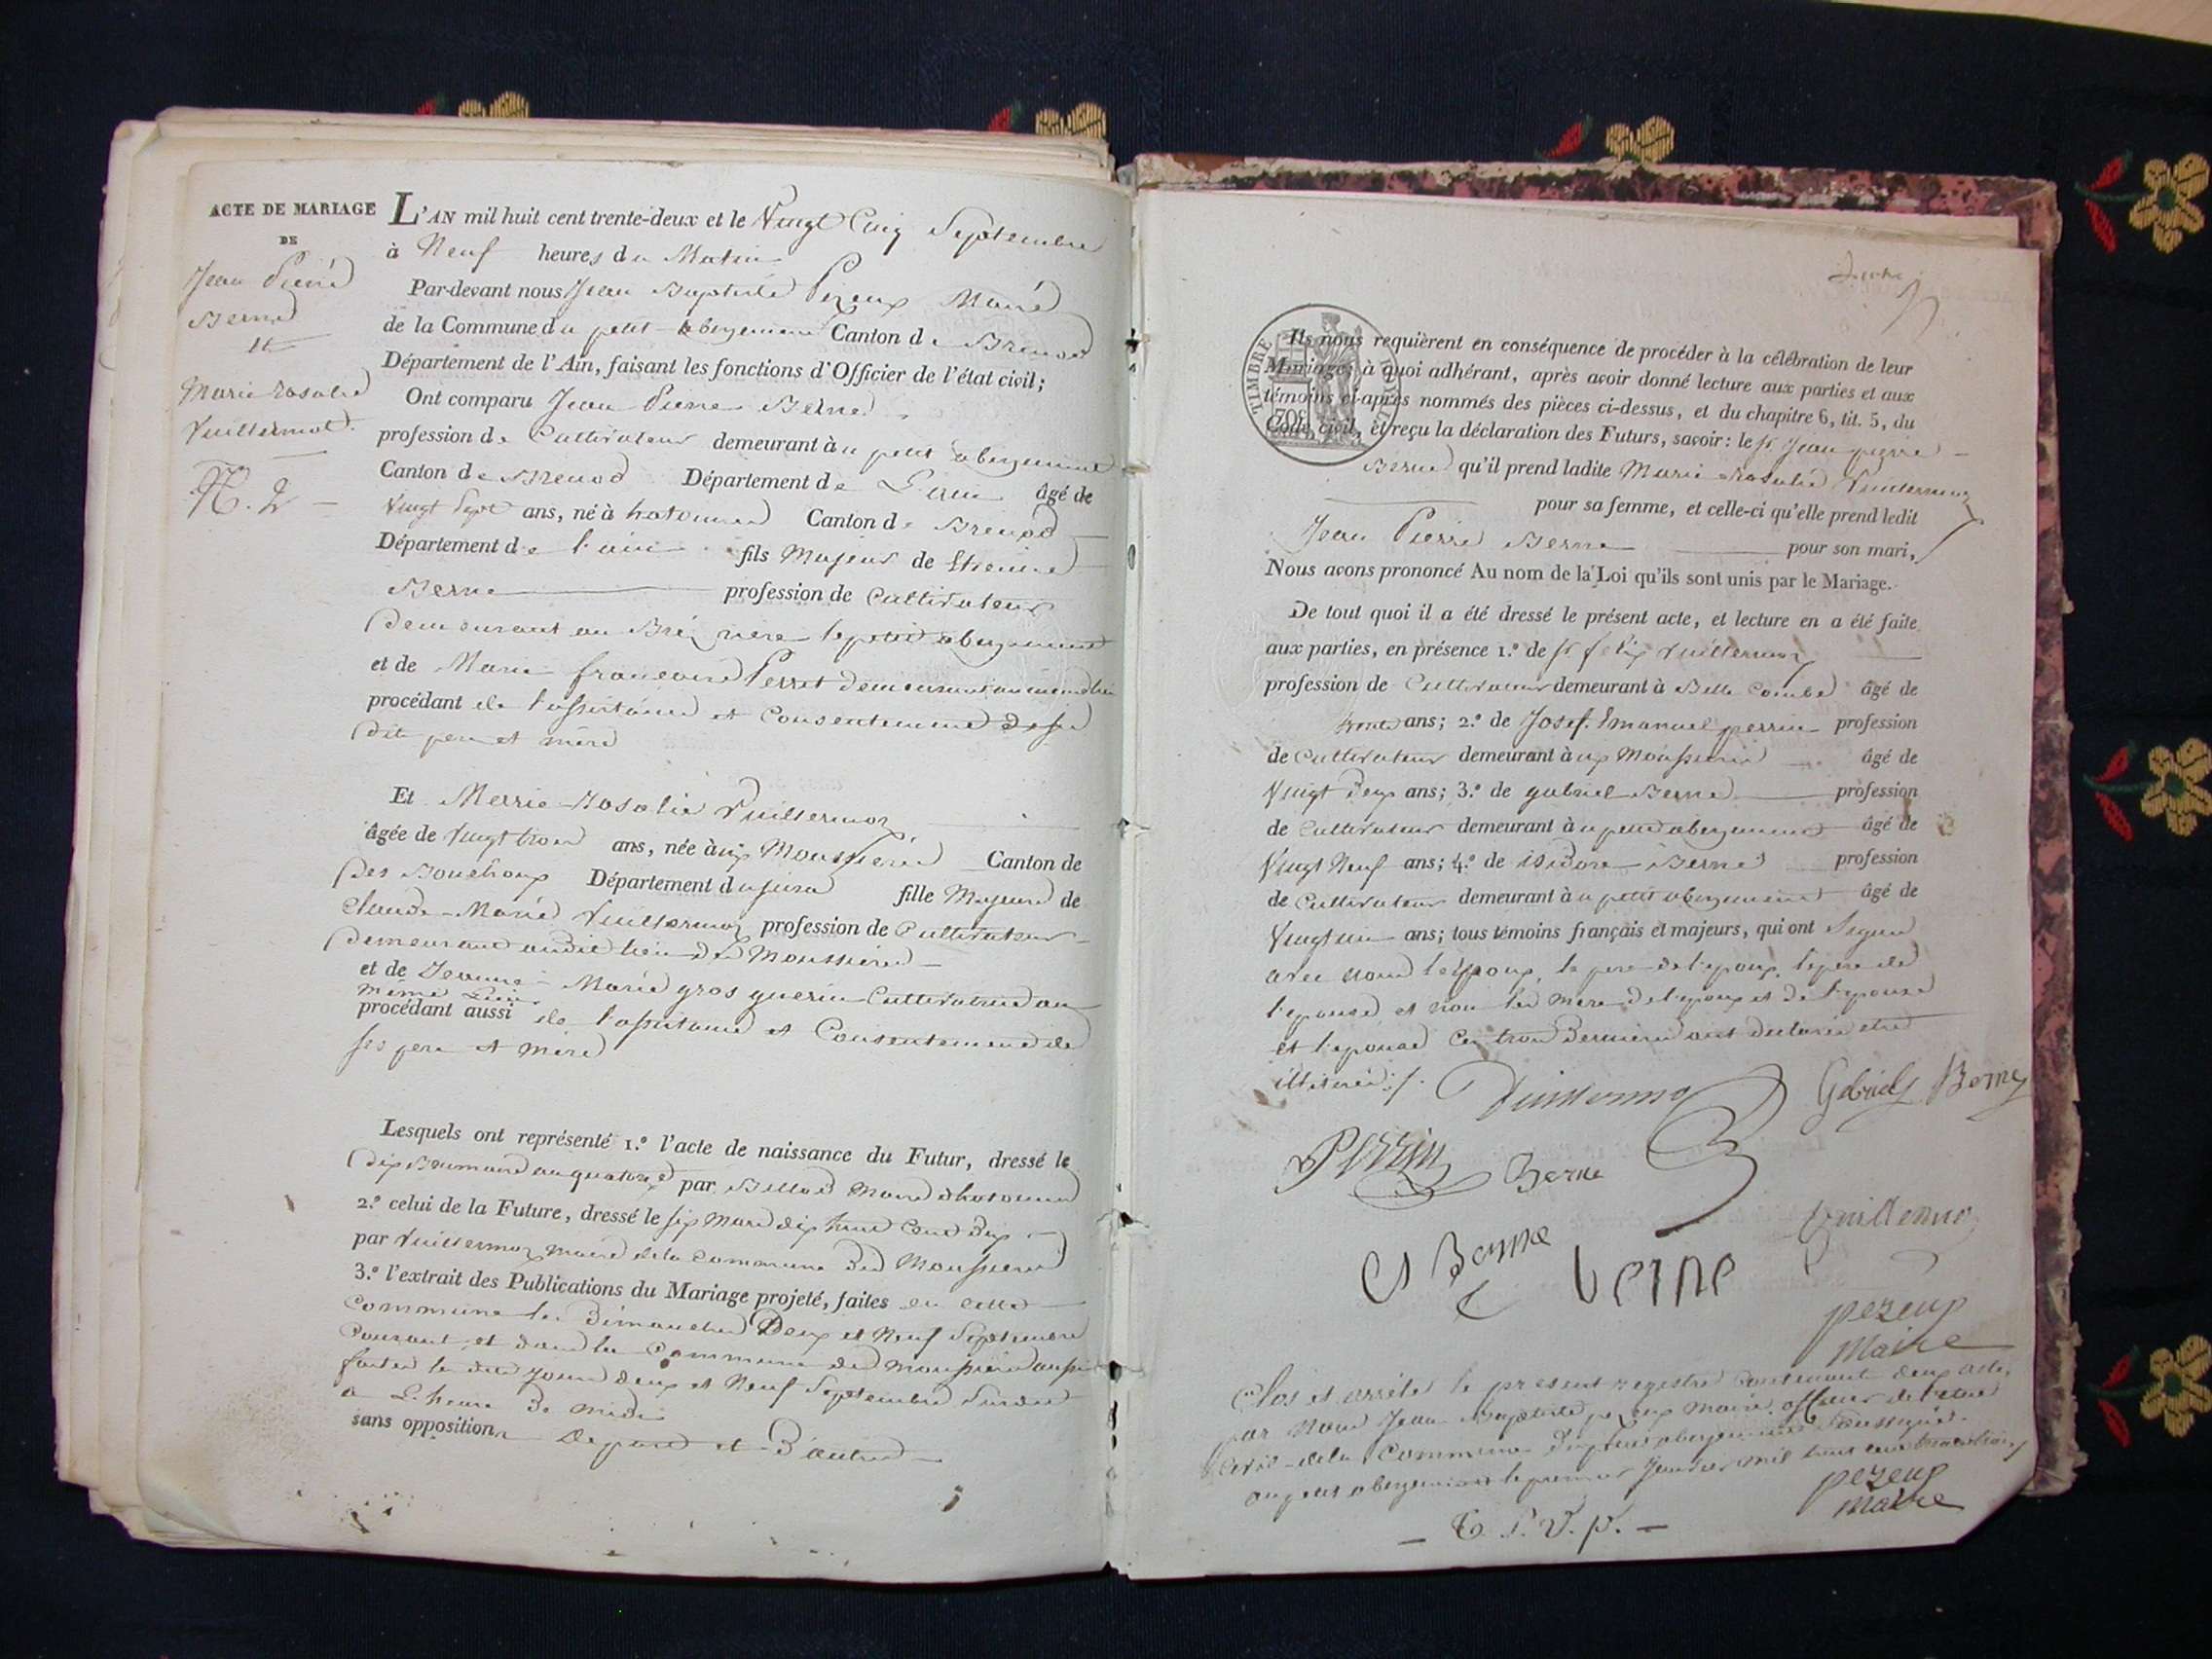 ACTE DE MARIAGE
DE
Jean Pierre
Berne
et
Marie rosalie
Vuillermot
N. 2
L'AN mil huit cent trente-deux et le Vingt Cinq Septembre
à Neuf heures du Matin
Par-devant nous Jean Baptiste Pezeux Maire
de la Commune du petit abergement Canton de Brenod
Département de l'Ain, faisant les fonctions d'Officier de l'état civil;
Ont comparu Jean Pierre Berne
profession de Cultivateur demeurant au petit abergement
Canton de Brenod Département de L'ain âgé de
Vingt Sept ans, né à hotonne Canton de Brenod
Département de l'ain fils Majeur de Etienne
Berne profession de Cultivateur
demeurant au rière le petit abergement
et de Marie francoise Perret demeurant au même lieu
procédant de l'assistance et Consentement de se
dits pere et mere
Et Marie Rosalie Vuillermoz
âgée de Vingt trois ans, née aux Moussieres Canton de
des Bouchoux Département du jura fille Majeure de
Claude-Marie Vuillermoz profession de Cultivateur
demeurant audit lieu des Moussieres
et de Jeanne-Marie gros gurin Cultivatrice au
même Lieu
procédant aussi de l'assistance et Consentement de
ses pere et mere
Lesquels ont représenté 1.º l'acte de naissance du Futur, dressé le
dix Brumaire an quatorze par Maire d'hotonne
2.º celui de la Future, dressé le six Mars dix huit Cent dix
par Vuillermoz maire de la Commune des Moussieres
3.º l'extrait des Publications du Mariage projeté, faites en cette
Commune les Dimanches Deux et Neuf Septembre
Courant et dans la Commune des moussieres aussi
faites le dits jours deux et Neuf Septembre
a L'heure de midi
sans opposition de part et D'autre
TIMBRE ROYAL
70c
Ils nous requièrent en conséquence de procéder à la célébration de leur
Mariage; à quoi adhérant, après avoir donné lecture aux parties et aux
témoins ci-après nommés des pièces ci-dessus, et du chapitre 6, tit. 5, du
Code civil, et reçu la déclaration des Futurs, savoir: le sr Jean pierre
Berne qu'il prend ladite Marie Rosalie Vuillermoz
pour sa femme, et celle-ci qu'elle prend ledit
Jean Pierre Berne pour son mari,
Nous avons prononcé Au nom de la Loi qu'ils sont unis par le Mariage.
De tout quoi il a été dressé le présent acte, et lecture en a été faite
aux parties, en présence 1.º de sr felix Vuillermoz
profession de Cultivateur demeurant à Belle Combe âgé de
trente ans; 2.º de Josef. Emanuel perrin profession
de Cultivateur demeurant aux Moussieres âgé de
Vingt deux ans; 3.º de gabriel Berne profession
de Cultivateur demeurant au petit abergement âgé de
Vingt Neuf ans; 4.º de isidore Berne profession
de Cultivateur demeurant au petit abergement âgé de
Vingt un ans; tous témoins français et majeurs, qui ont Signé
avec nous l'époux, le pere de l'epoux, le pere de
l'epouse, et non les mere de l'epoux et de l'epouse
et l'epouse Ces trois Derniere ont declarée etre
illiterée
Vuillermoz Gabriel Berne
Perrin Berne
Berne berne Vuillermoz
pezeux
Maire
Clos et arrêté le présent registre Contenant deux actes
par Nous Jean Baptiste pezeux Maire officier de l'etat
Civil de la Commune du petit abergement Soussigné
au petit abergement le premier Janvier mil huit cent trente trois
pezeux
maire
- T. S. V. P. -